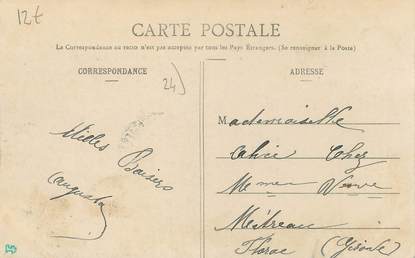 12t
CARTE POSTALE
La Correspondance au recto n'est pas acceptée par tous les Pays Étrangers. (Se renseigner à la Poste)
CORRESPONDANCE
24
Baisers
Augusta
ADRESSE
Mademoiselle
Alice Chez
Mme Veuve
Métreau
(Gironde)